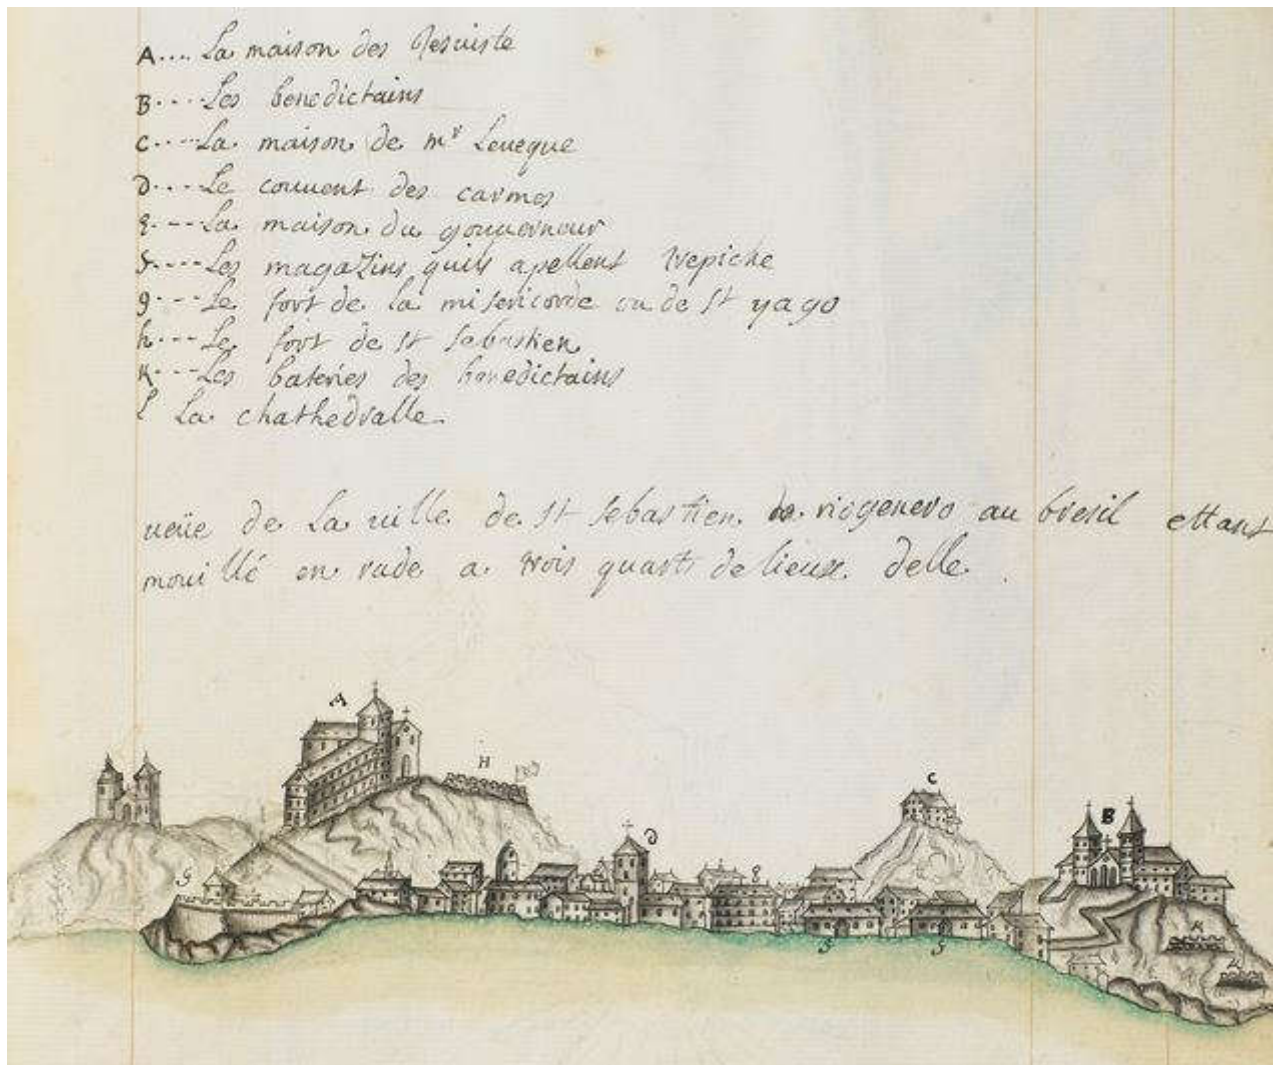 A.... La maison des Jesuiste
B....Les benedictains
C....La maison de mr Leveque
D....Le couuent des carmes
E....La maison du gouuerneur
F....Les magaZins quils apellent trepiche
g...Le fort de la misericorde ou de st yago
h...Le fort de st sebastien
K...Les bateries des benedictains
l La chathedralle.
ueüe de La uille de st sebastien de riogenero au bresil ettant
mouillé en rade a trois quarts de lieux delle.
A
H
C
B
D
G
E
K
K
F
F